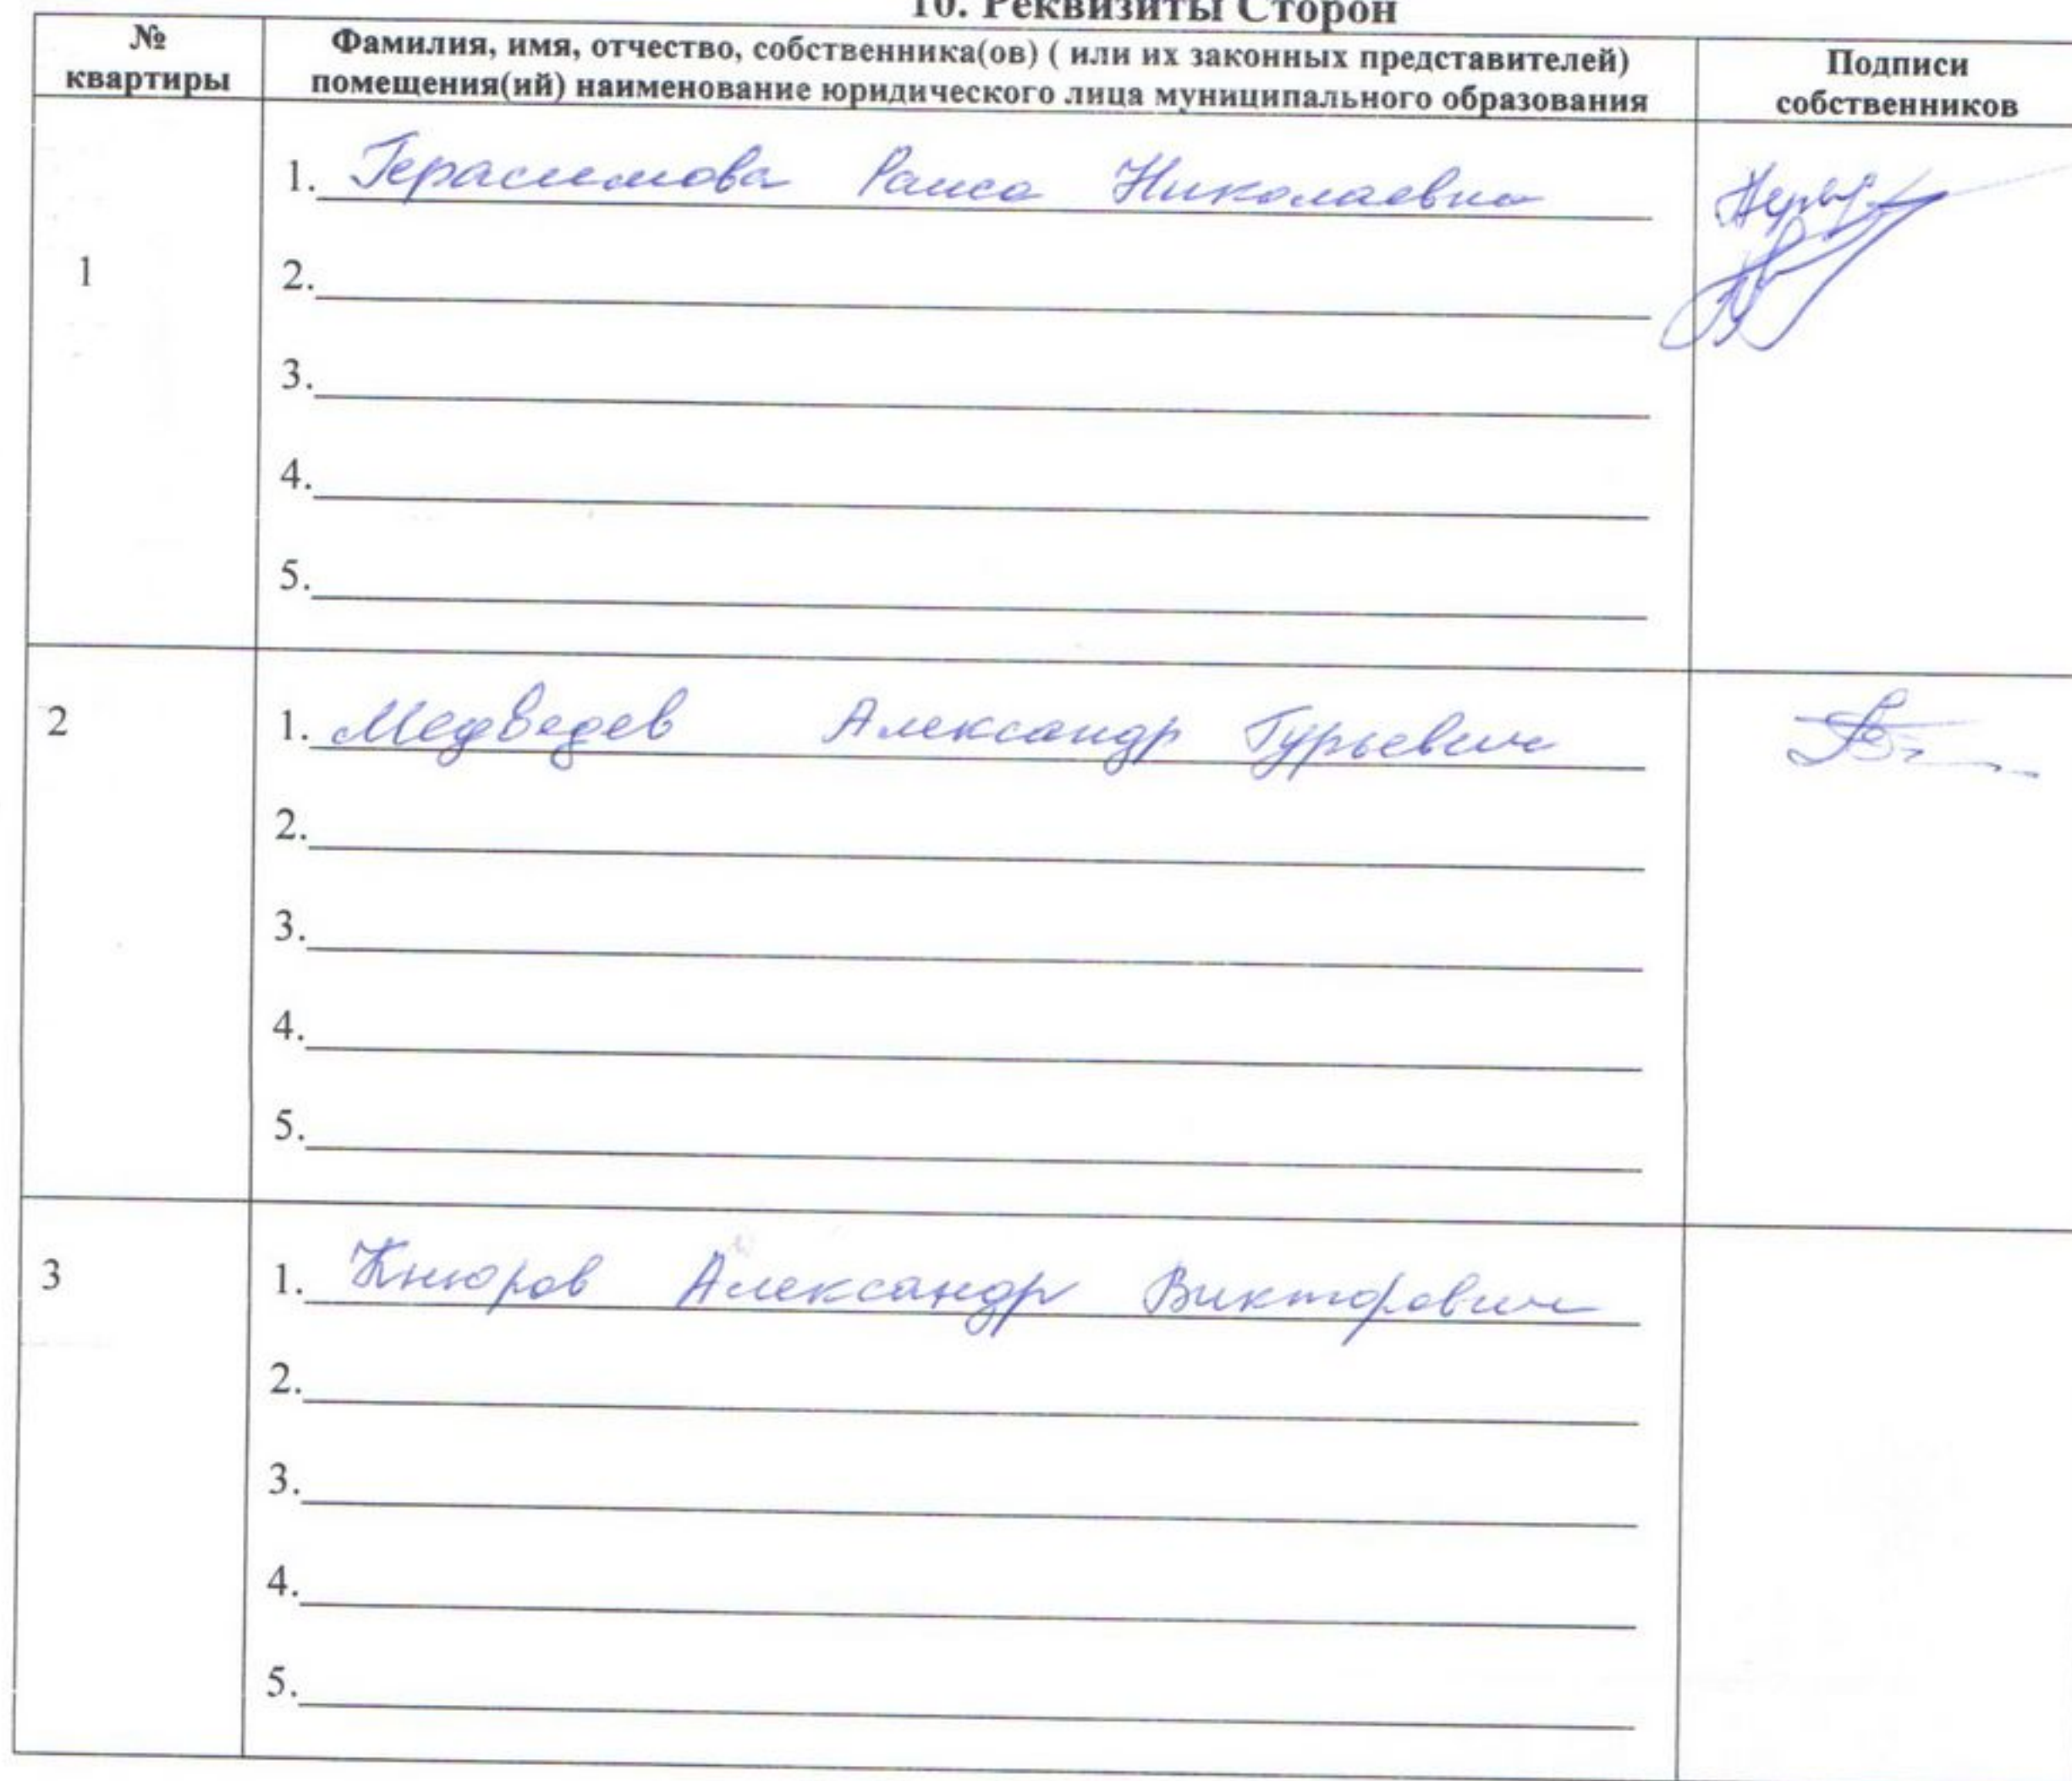 10. Реквизиты Сторон
№ квартиры
Фамилия, имя, отчество, собственника(ов) ( или их законных представителей)
помещения(ий) наименование юридического лица муниципального образования
Подписи
собственников
1
1. Герасимова Раиса Николаевна
2.
3.
4.
5.
2
1. Медведев Александр Гурьевич
2.
3.
4.
5.
3
1. Кнюров Александр Викторович
2.
3.
4.
5.